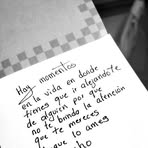 Hay momentos
en la vida en donde
tienes que ir alejandote
de alguien por que
no te brinda la atención
que te mereces
que lo ames
ho